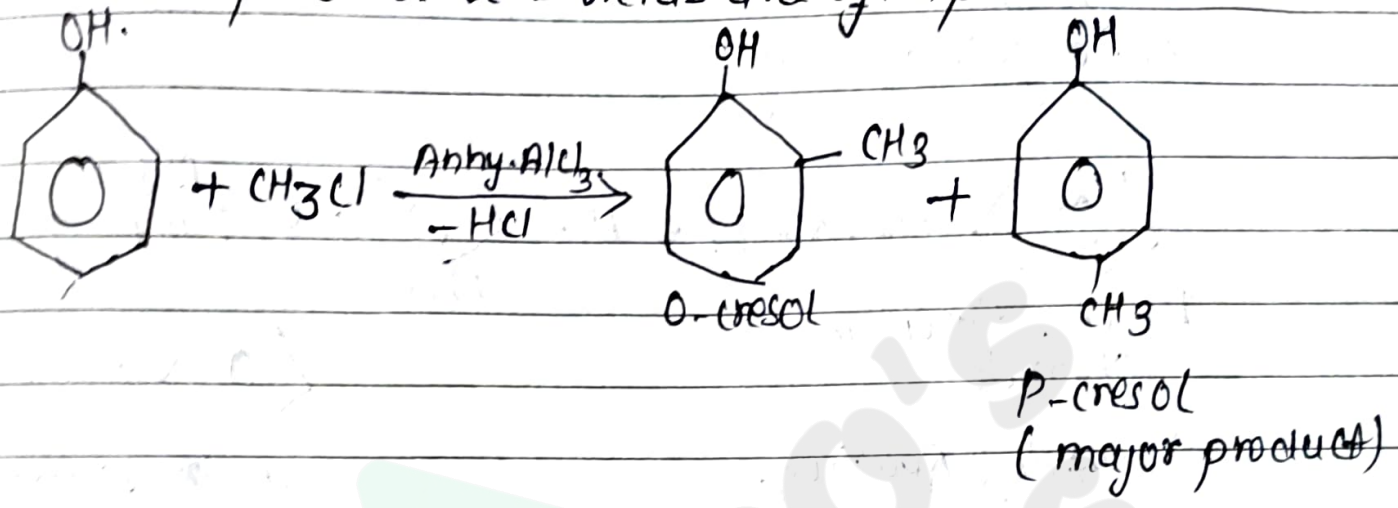 OH.
OH
OH
+ CH3Cl
Anhy.AlCl3
-HCl
CH3
+
O-cresol
CH3
P-cresol
(major product)